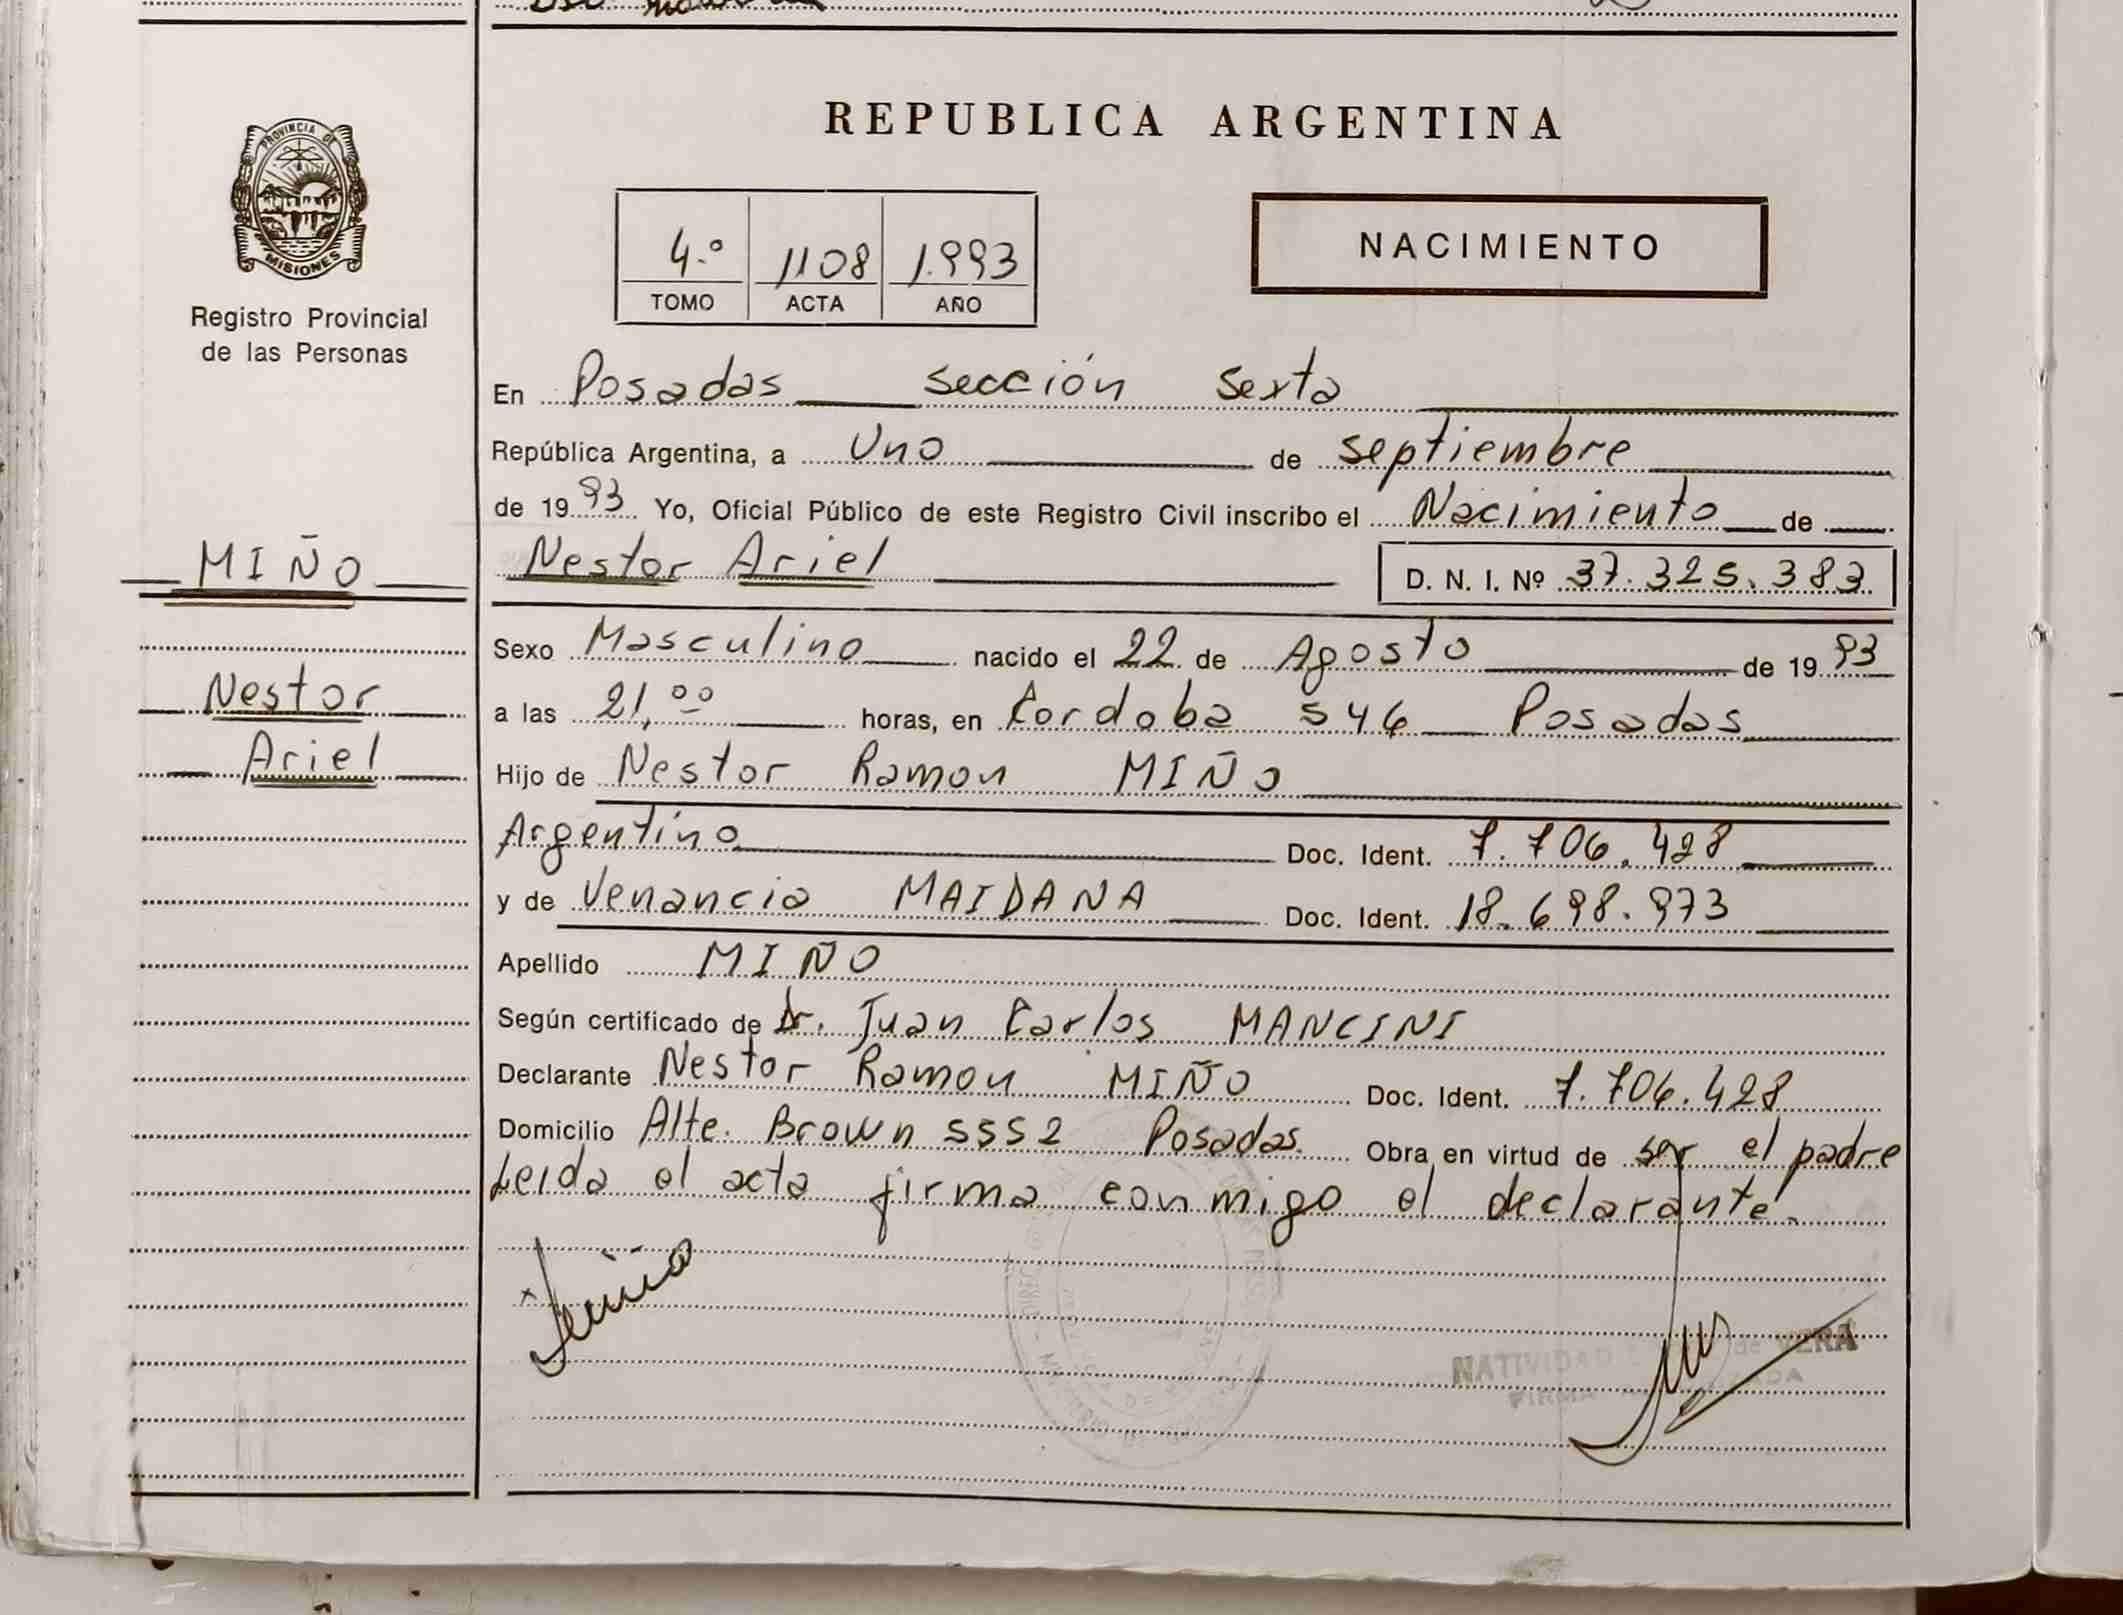 PROVINCIA DE
MISIONES
Registro Provincial
de las Personas
MIÑO
Nestor
Ariel
REPUBLICA ARGENTINA
4.º 1108 1.993
TOMO ACTA AÑO
NACIMIENTO
En Posadas sección sexta
República Argentina, a Uno de septiembre
de 1993 Yo, Oficial Público de este Registro Civil inscribo el Nacimiento de
Nestor Ariel D. N. I. Nº 37.325.383
Sexo Masculino nacido el 22 de Agosto de 1993
a las 21,00 horas, en Cordoba 546 Posadas
Hijo de Nestor Ramon MIÑO
Argentino Doc. Ident. 7.706.428
y de Venancia MAIDANA Doc. Ident. 18.698.973
Apellido MIÑO
Según certificado de Dr. Juan Carlos MANCINI
Declarante Nestor Ramon MIÑO Doc. Ident. 7.706.428
Domicilio Alte. Brown 5552 Posadas. Obra en virtud de ser el padre
Leida el acta firma conmigo el declarante.
x Miño
NATIVIDAD de VERA
FIRMA